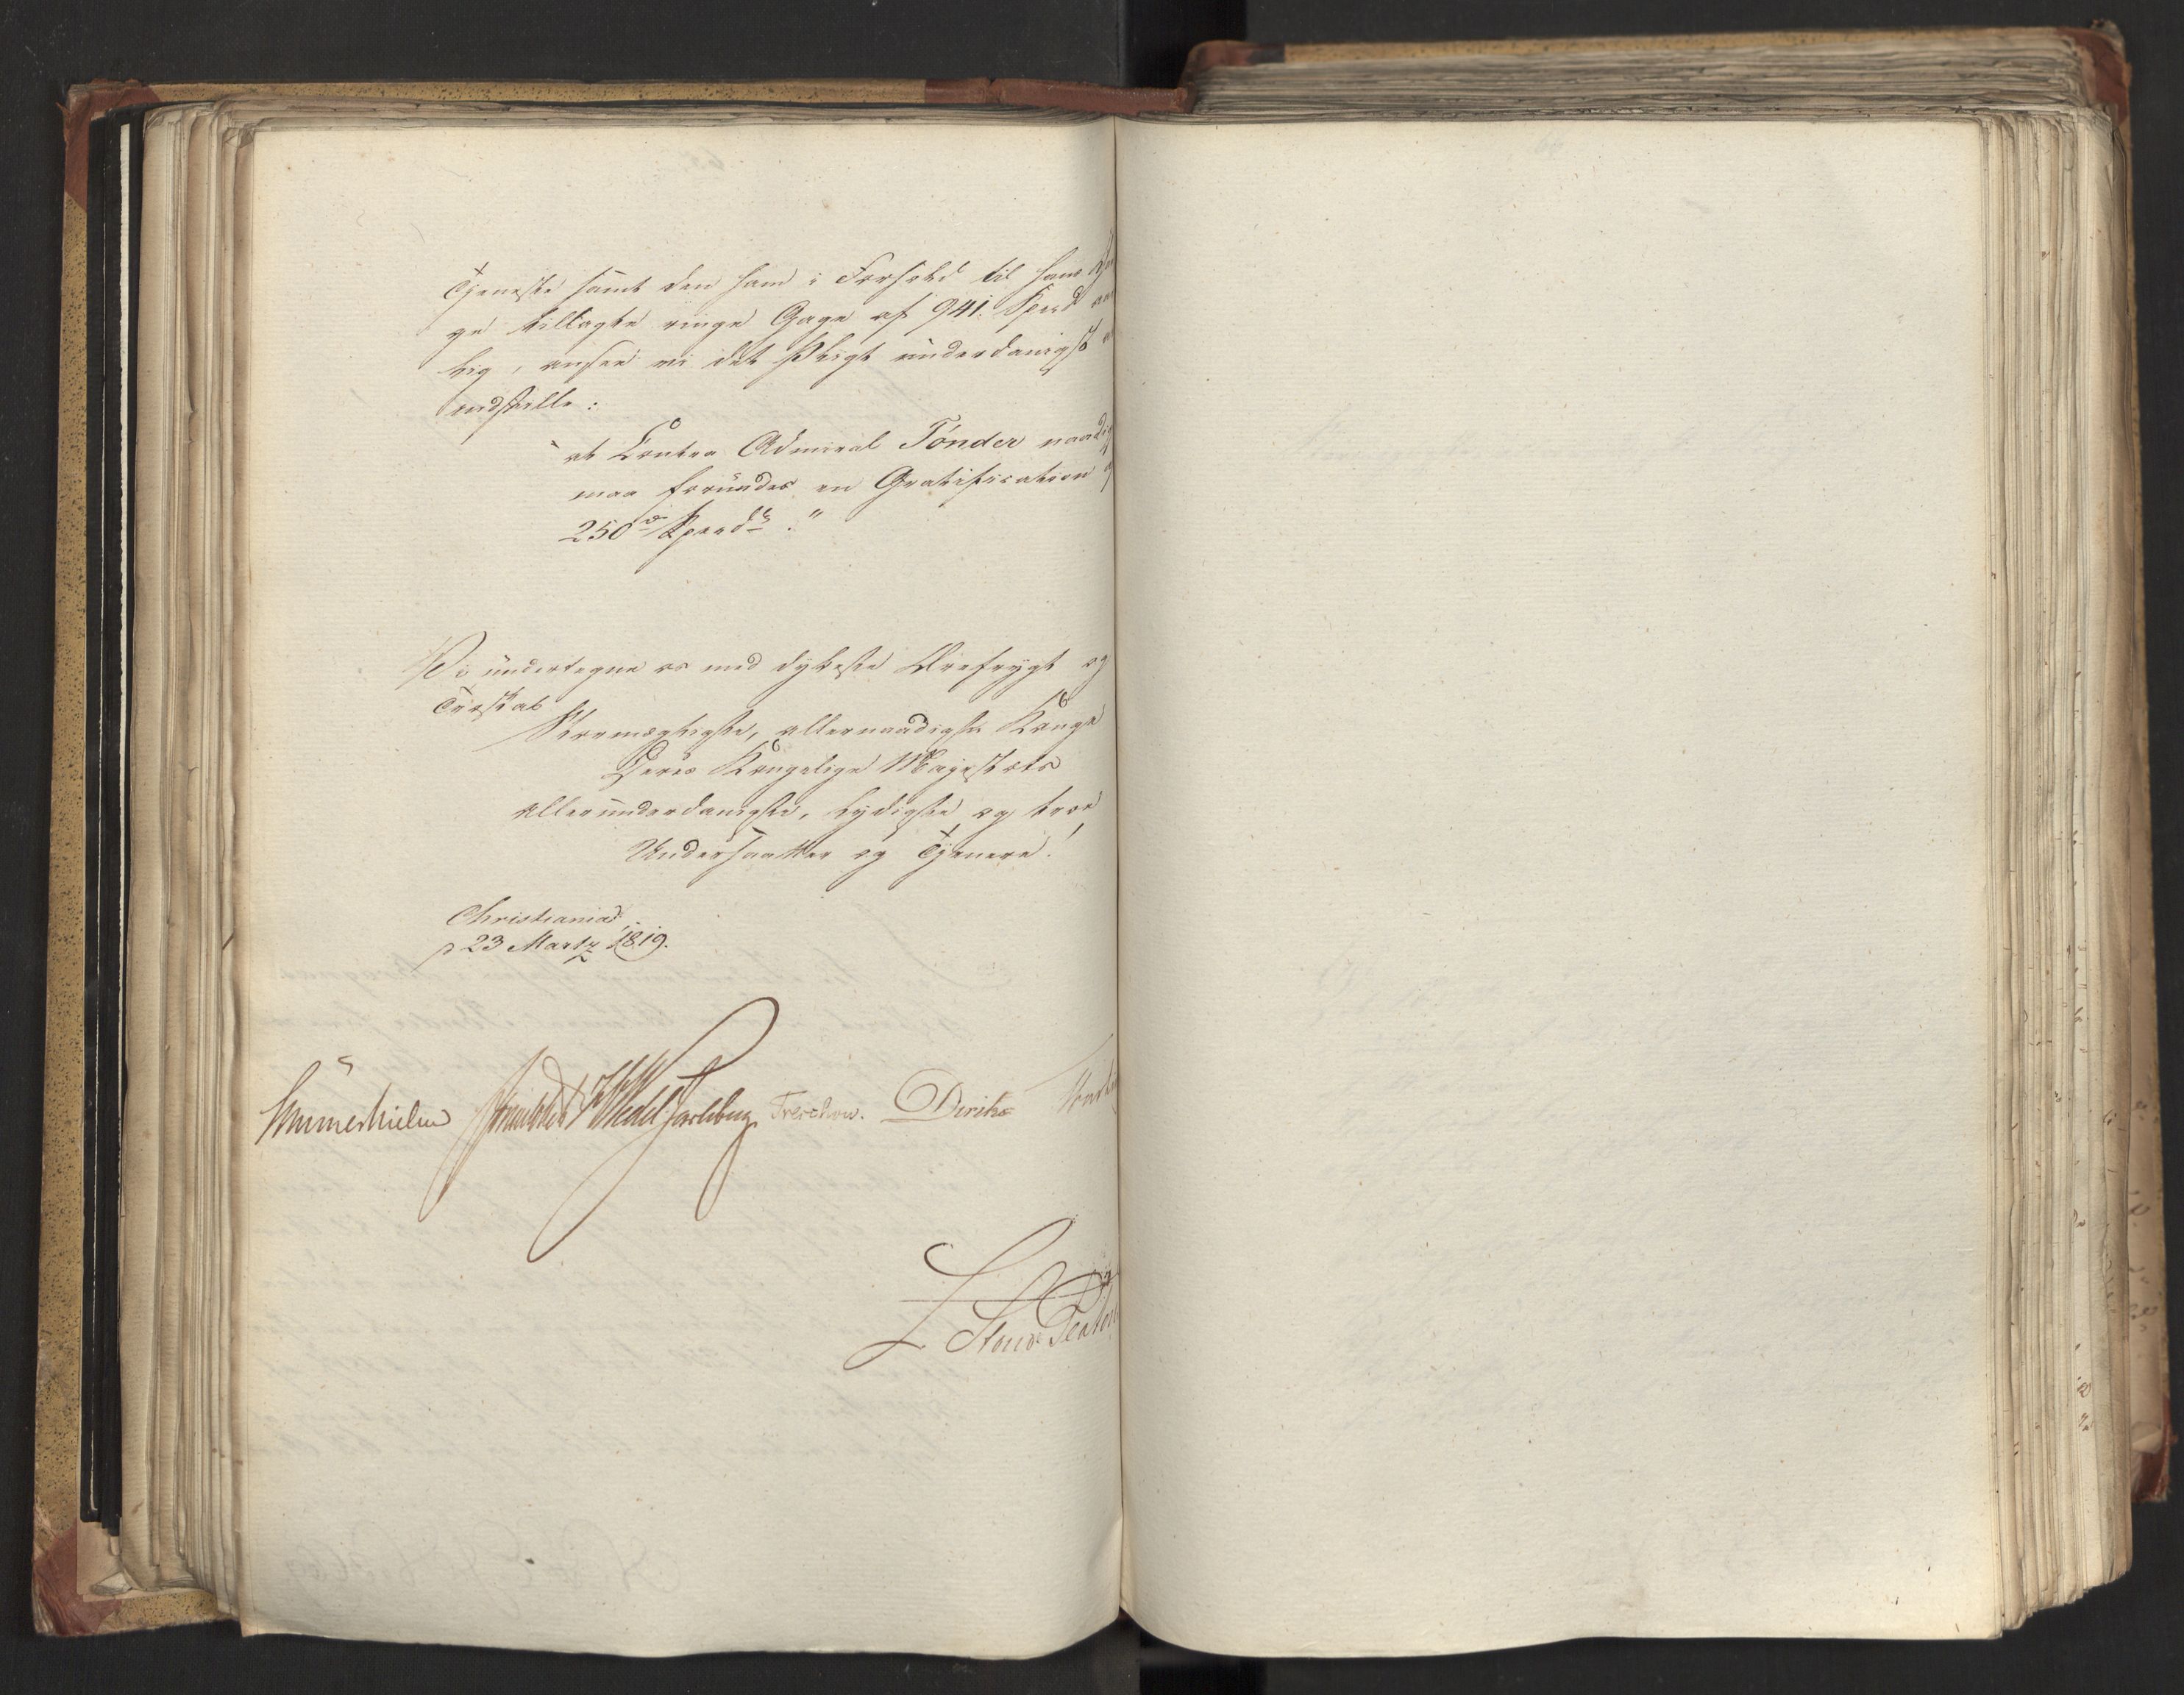 Tjeneste samt den ham i Forhold til hans
ge tillagte ringe Gage af 941 Spd
lig, ansee vi det Pligt underdanigst
indstille:
"at Contra Admiral Tönder naadigst
maa forundes en Gratification af
250 Specd."
Vi undertegne os med dybeste Ærefrygt og
Troskab
Stormægtigste, allernaadigste Konge
Deres Kongelige Majestæts
allerunderdanigste, lydigste og troe
Undersaatter og Tjenere!
Christiania
d 23 Martz 1819.
Mørner Sommerhielm Wedel Jarlsberg Treschow. Diriks
Stoud Platou